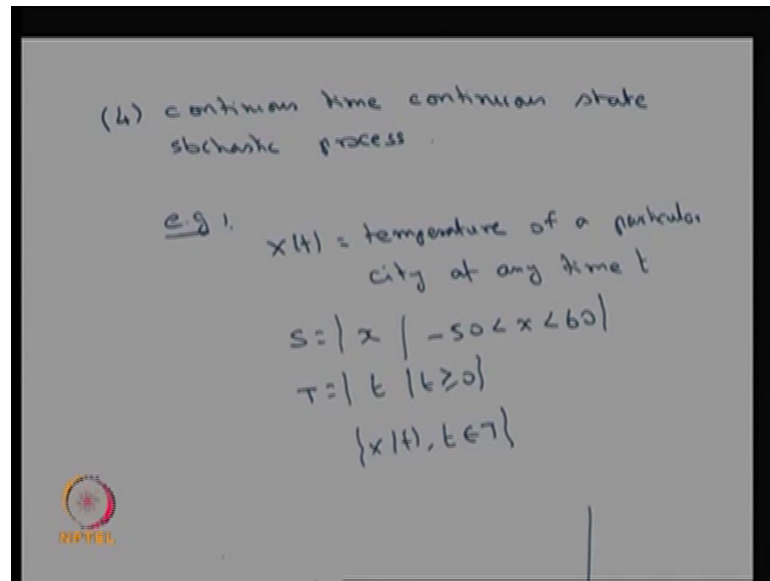 (4) continuous time continuous state
stochastic process.
e.g 1.
x(t) = temperature of a particular
city at any time t
S = { x | -50 < x < 60 }
T = { t | t ≥ 0 }
{ x(t), t ∈ T }
NPTEL